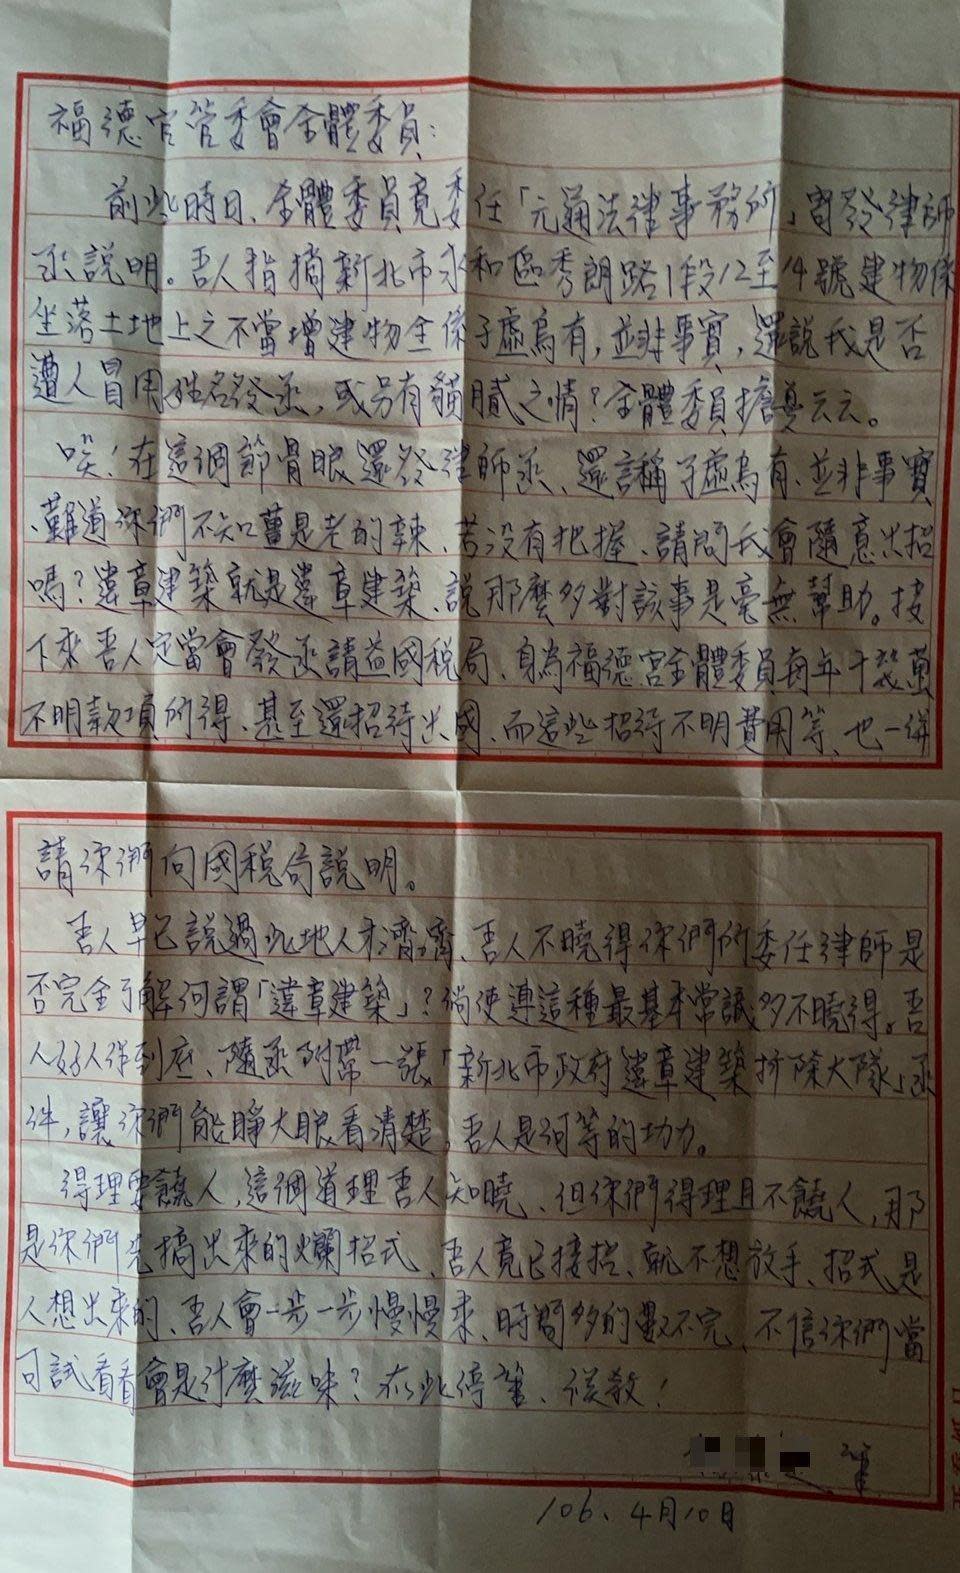 福德宮管委會全體委員：
前些時日、全體委員竟委任「元通法律事務所」寄發律師
函說明。吾人指摘新北市永和區秀朗路1段12至14號建物係
坐落土地上之不當增建物全係子虛烏有，並非事實，還說我是否
遭人冒用姓名發函，或另有貓膩之情？全體委員擔憂云云。
唉！在這個節骨眼還發律師函、還謂子虛烏有、並非事實
、難道你們不知薑是老的辣、若没有把握、請問我會隨意出招
嗎？違章建築就是違章建築、說那麼多對該事是毫無幫助。接
下來吾人定當會發函請益國稅局、身為福德宮全體委員每年十幾萬
不明款項所得、甚至還招待出國、而這些招待不明費用等、也一併
請你們向國稅局說明。
吾人早已說過此地人才濟濟、吾人不曉得你們所委任律師是
否完全了解何謂「違章建築」？倘使連這種最基本常識多不曉得。吾
人好人作到底、隨函附帶一張「新北市政府違章建築拆除大隊」函
件，讓你們能睜大眼看清楚，吾人是何等的功力。
得理要饒人，這個道理吾人知曉、但你們得理且不饒人，那
是你們先搞出來的爛招式、吾人竟已接招、就不想放手、招式是
人想出來的、吾人會一步一步慢慢來、時間多的數不完、不信你們當
可試看看會是什麼滋味？在此停筆、候教！
筆
106、4月10日